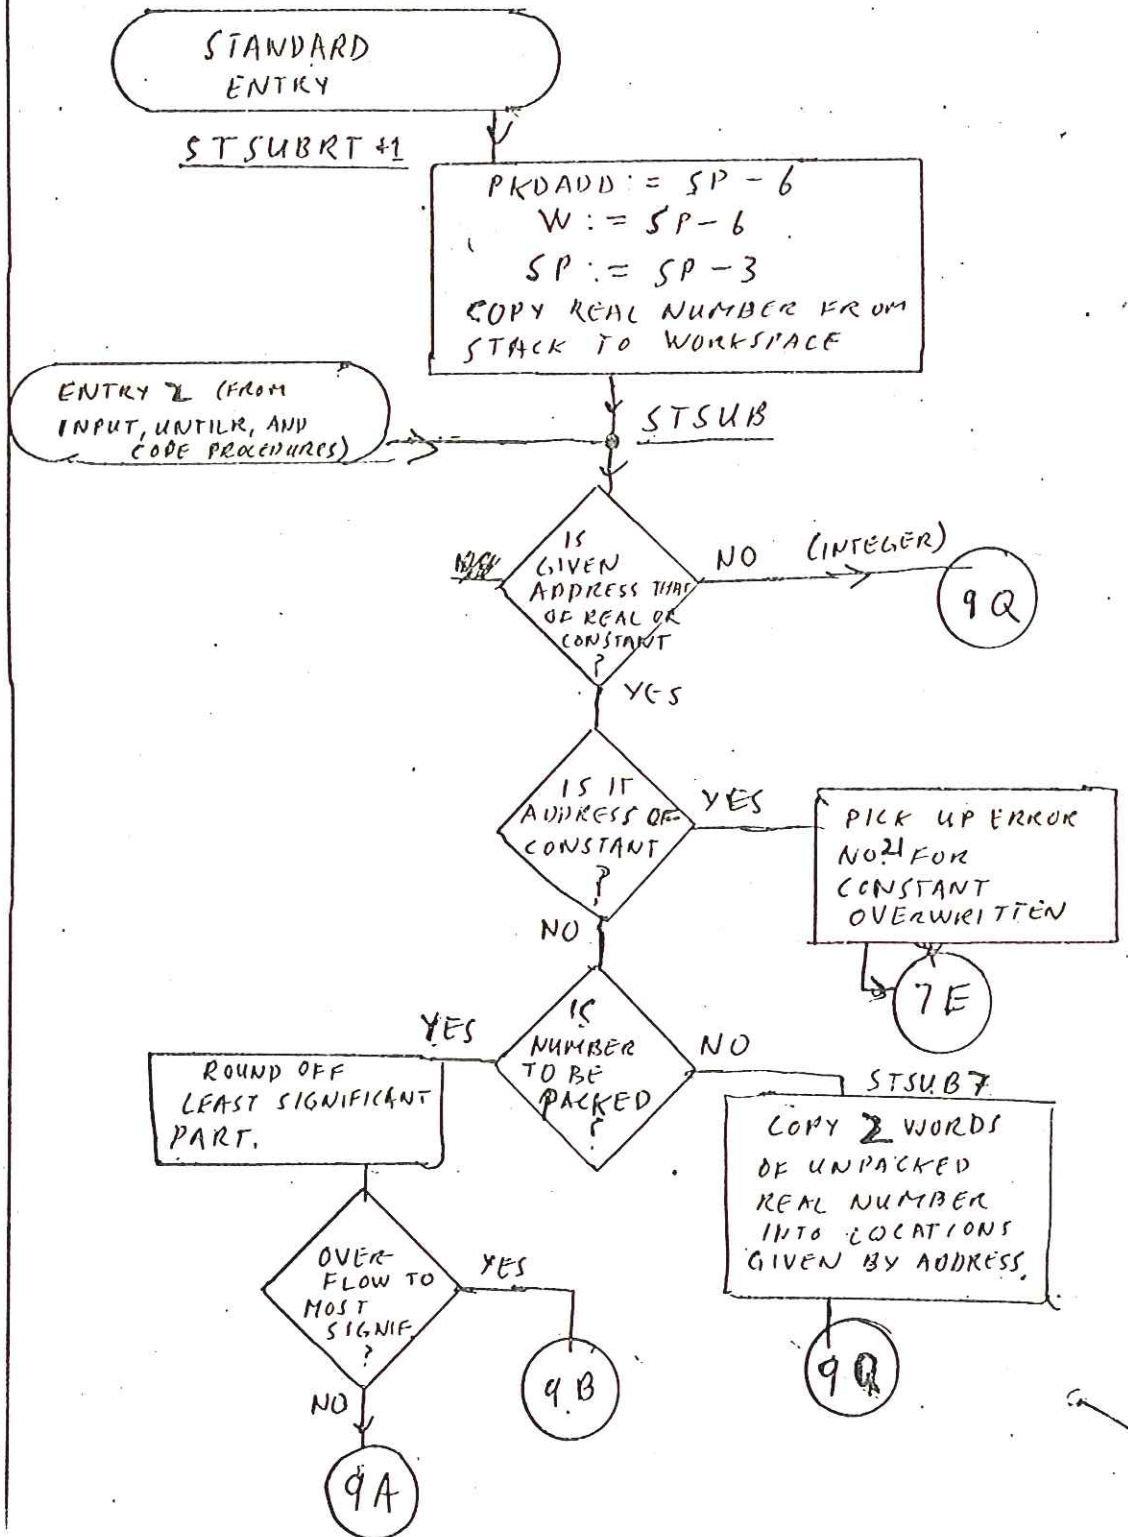 STANDARD
ENTRY
STSUBRT +1
PKDADD := SP - 6
W := SP - 6
SP := SP - 3
COPY REAL NUMBER FROM
STACK TO WORKSPACE
ENTRY 2 (FROM
INPUT, UNTILR, AND
CODE PROCEDURES)
STSUB
IS
GIVEN
ADDRESS THAT
OF REAL OR
CONSTANT
?
NO (INTEGER)
9Q
YES
IS IT
ADDRESS OF
CONSTANT
?
YES
PICK UP ERROR
NO. 21 FOR
CONSTANT
OVERWRITTEN
7E
NO
IS
NUMBER
TO BE
PACKED
?
YES
NO
ROUND OFF
LEAST SIGNIFICANT
PART.
STSUB7
COPY 2 WORDS
OF UNPACKED
REAL NUMBER
INTO LOCATIONS
GIVEN BY ADDRESS.
OVER-
FLOW TO
MOST
SIGNIF.
?
YES
9B
9Q
NO
9A